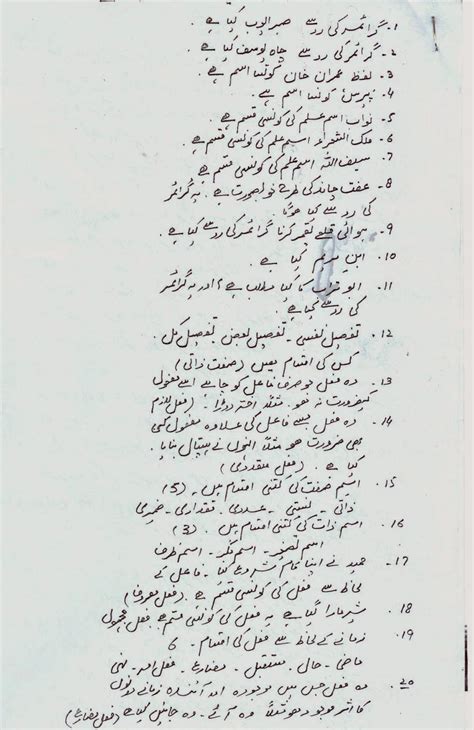 1. گرائمر کی رو سے صبر ایوب کیا ہے۔
2. گرائمر کی رو سے چاہ یوسف کیا ہے۔
3. لفظ عمران خان کونسا اسم ہے۔
4. پیرس کونسا اسم ہے۔
5. نواب اسم علم کی کونسی قسم ہے۔
6. ملک الشعراء اسم علم کی کونسی قسم ہے۔
7. سیف اللہ اسم علم کی کونسی قسم ہے
8. عفت چاند کی طرح خوبصورت ہے۔ یہ گرائمر
کی رو سے کیا ہوگا۔
9. ہوائی قلعے تعمیر کرنا گرائمر کی رو سے کیا ہے۔
10. ابن مریم کیا ہے۔
11. ابو تراب کا کیا مطلب ہے؟ اور یہ گرائمر
کی رو سے کیا ہے۔
12. تفضیل نفسی۔ تفضیل بعض۔ تفضیل کل۔
کس کی اقسام ہیں (صفت ذاتی)
13. وہ فعل جو صرف فاعل کو چاہے اسے مفعول
کی ضرورت نہ ہو۔ مثلاً اختر دوڑا۔ (فعل لازم
14. وہ فعل جسے فاعل کے علاوہ مفعول کی
بھی ضرورت ہو مثلاً انہوں نے ہسپتال بنایا۔
کیا ہے۔ (فعل متعدی)
15. اسم صفت کی کتنی اقسام ہیں۔ (5)
ذاتی۔ نسبتی۔ عددی۔ مقداری۔ ضمیری
16. اسم ذات کی کتنی اقسام ہیں۔ (3)
اسم تصغیر۔ اسم مکبر۔ اسم ظرف
17. حمید نے اپنا کام شروع کیا۔ فاعل کے
لحاظ سے فعل کی کونسی قسم ہے۔ (فعل معروف)
18. شیر مارا گیا ہے یہ فعل کی کونسی قسم ہے۔ فعل مجہول
19. زمانے کے لحاظ سے فعل کی اقسام۔ 6
ماضی۔ حال۔ مستقبل۔ مضارع۔ فعل امر۔ نہی
20. وہ فعل جس میں موجودہ اور آئندہ زمانے دونوں
کا اثر موجود ہو مثلاً وہ آئے۔ وہ جائیں کیا ہے (فعل مضارع)